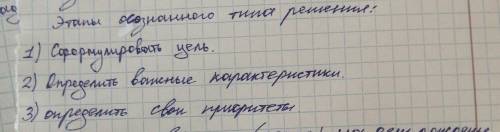 Этапы осознанного типа решения:
1) Сформулировать цель.
2) Определить важные характеристики.
3) определить свои приоритеты